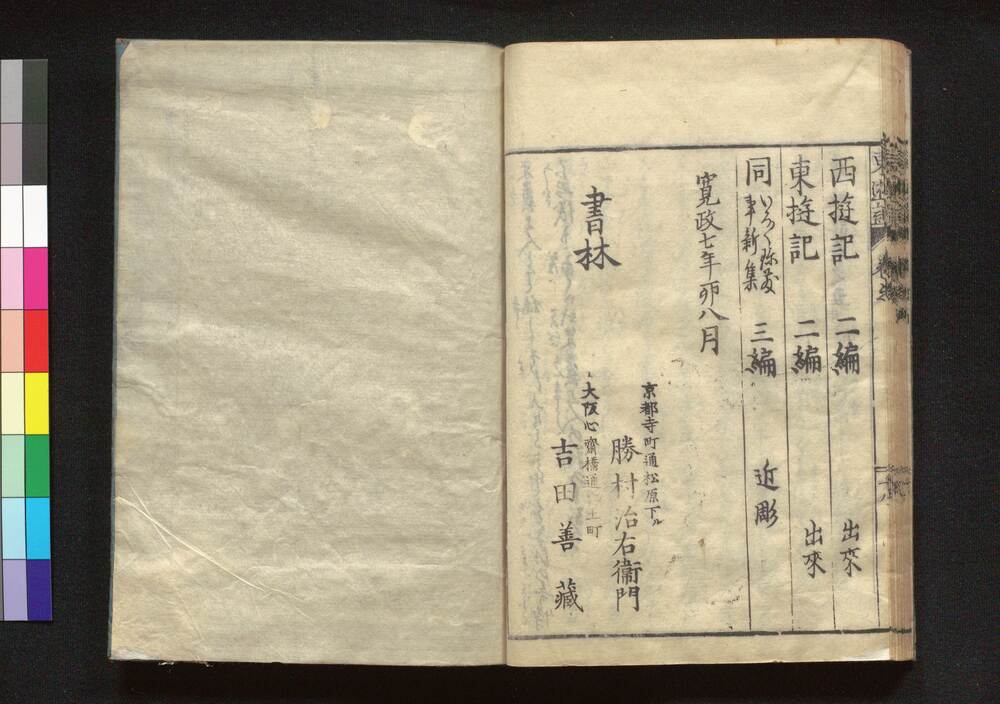 西遊記 二編 出來
東遊記 二編 出來
同 三編 近彫
寛政七年卯八月
京都寺町通松原下ル
勝村治右衞門
書林
大阪心齋橋通
吉田善藏